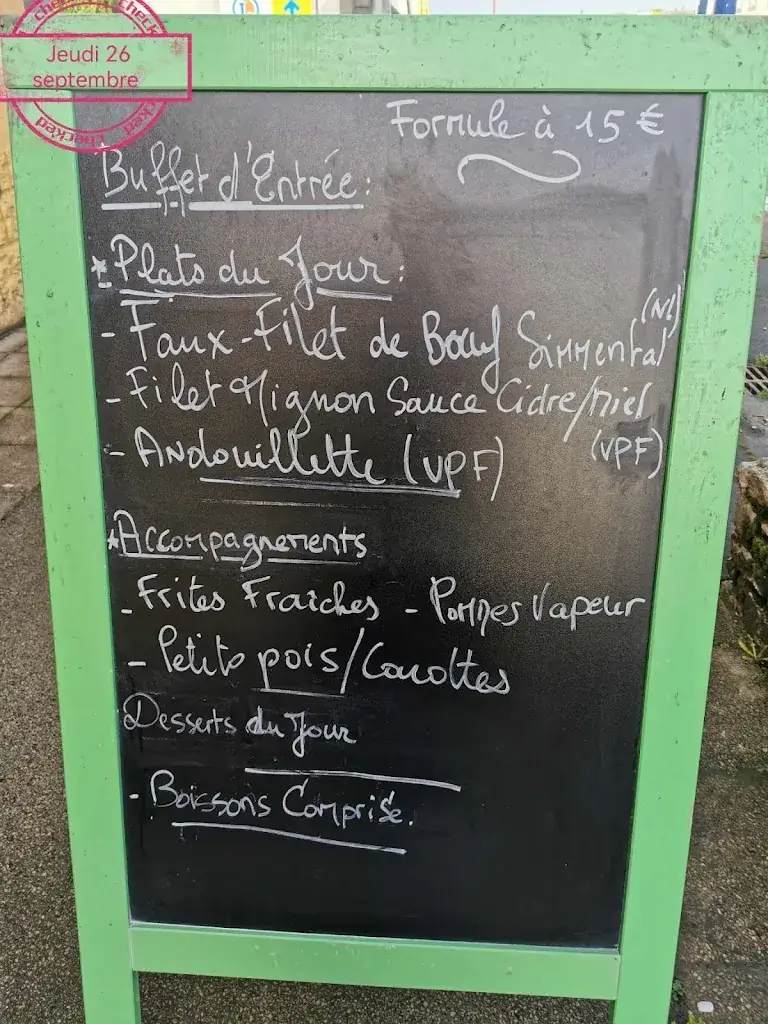 Jeudi 26
septembre
checked
Formule à 15 €
Buffet d'Entrée:
* Plats du Jour:
- Faux-Filet de Bœuf Simmental (NL)
- Filet Mignon Sauce Cidre/Miel
(VPF)
- Andouillette (VPF)
* Accompagnements
- Frites Fraîches - Pommes Vapeur
- Petits pois/Carottes
Desserts du Jour
- Boissons Comprise.